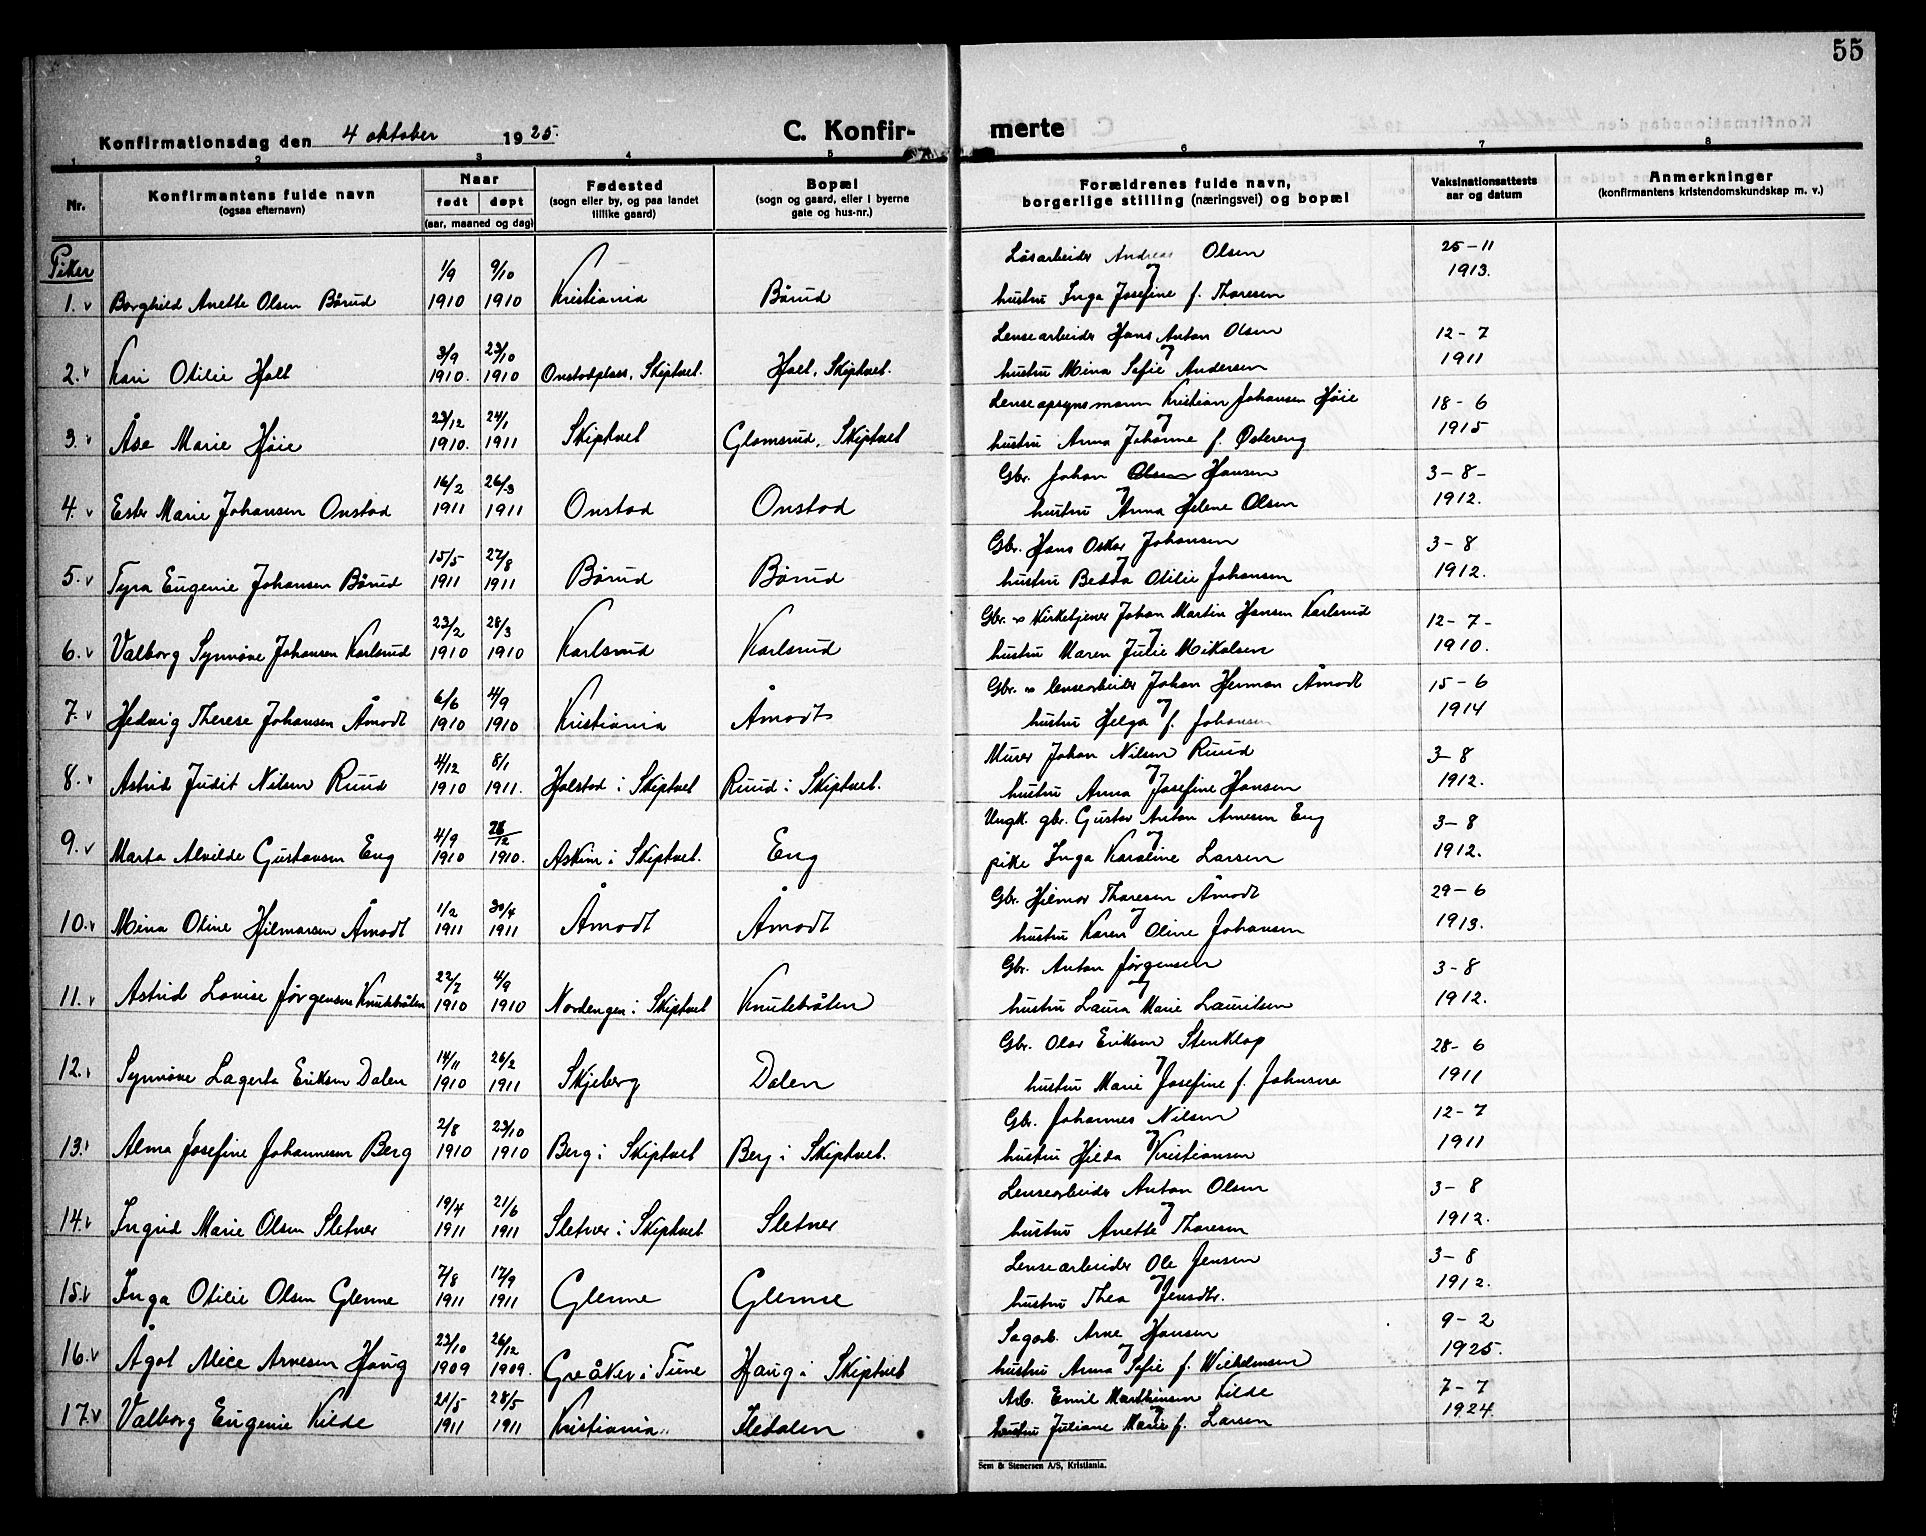 55
Konfirmationsdag den 4 oktober 1925.
C. Konfirmerte
1 2 3 4 5 6 7 8
Nr.
Konfirmantens fulde navn
(ogsaa efternavn)
Naar
født døpt
(aar, maaned og dag)
Fødested
(sogn eller by, og paa landet
tillike gaard)
Bopæl
(sogn og gaard, eller i byerne
gate og hus-nr.)
Forældrenes fulde navn,
borgerlige stilling (næringsvei) og bopæl
Vaksinationsattests
aar og datum
Anmerkninger
(konfirmantens kristendomskundskap m. v.)
Piker
1/9 9/10 Løsarbeider Andreas Olsen 25-11
1. v Borghild Anette Olsen Børud 1910 1910 Kristiania Børud og hustru Inga Josefine f. Thoresen 1913.
3/9 23/10 Lensearbeider Hans Anton Olsen 12-7
2. v Kari Otilie Holt 1910. 1910 Onstadplass, Skiptvet. Holt, Skiptvet. og hustru Mina Sofie Andersen 1911
23/12 24/1 Lenseopsynsmann Kristian Johansen Høie 18-6
3. v Åse Marie Høie 1910. 1911 Skiptvet Glomsrud, Skiptvet og hustru Anna Johanne f. Østereng 1915
16/2 26/3 Gbr. Johan Olsen Hansen 3-8-
4. v Ester Marie Johansen Onstad 1911 1911 Onstad Onstad og hustru Anna Helene Olsen 1912.
15/5 27/8 Gbr. Hans Oskar Johansen 3-8
5. v Tyra Eugenie Johansen Børud 1911 1911 Børud Børud og hustru Bedda Otilie Johansen 1912.
23/2 28/3 Gbr. & Kirketjener Johan Martin Hansen Karlsrud 12-7-
6. v Valborg Synnøve Johansen Karlsrud 1910 1910 Karlsrud Karlsrud og hustru Maren Julie Mikalsen 1910.
6/6 4/9 Gbr. & lensearbeider Johan Herman Åmodt 15-6
7. v Hedvig Therese Johansen Åmodt 1910 1910 Kristiania Åmodt og hustru Helga f. Johansen 1914
4/12 8/1 Murer Johan Nilsen Ruud 3-8
8. v Astrid Judit Nilsen Ruud 1910 1911. Holstad i Skiptvet Ruud i Skiptvet. og hustru Anna Josefine Hansen 1912.
4/9 26/12 Ungk. gbr. Gustav Anton Arnesen Eng 3-8
9. v Marta Alvilde Gustavsen Eng 1910 1910. Askim i Skiptvet. Eng og pike Inga Karoline Larsen 1912.
1/2 30/4 Gbr. Hilmar Thoresen Åmodt 29-6
10. v Mina Oline Hilmarsen Åmodt 1911 1911 Åmodt Åmodt og hustru Karen Oline Johansen 1913.
22/7 4/9 Gbr. Anton Jørgensen 3-8
11. v Astrid Lovise Jørgensen Knutebråten 1910 1910 Nordengen i Skiptvet Knutebråten og hustru Laura Marie Lauritsen 1912.
14/11 26/2 Gbr. Olav Eriksen Stenklop 28-6
12. Synnøve Lagerta Eriksen Dalen 1910 1911 Skjeberg Dalen og hustru Marie Josefine f. Johnsen 1911
2/8 23/10 Gbr. Johannes Nilsen 12-7
13. Alma Josefine Johannesen Berg 1910 1910 Berg i Skiptvet Berg i Skiptvet. og hustru Hilda Kristiansen 1911
19/4 21/6 Lensearbeider Anton Olsen 3-8
14. v Ingrid Marie Olsen Sletner 1911 1911 Sletner i Skiptvet Sletner og hustru Anette Thoresen 1912.
7/8 17/9 Lensearbeider Ole Jensen 3-8
15. v Inga Otilie Olsen Glenne 1911 1911 Glenne Glenne og hustru Thea Jensdtr. 1912.
23/10 26/12 Sagarb. Arne Hansen 9-2
16. v Ågot Alice Arnesen Haug 1909 1909. Greåker i Tune Haug i Skiptvet og hustru Anna Sofie f. Wilhelmsen 1925.
21/5 28/5 Arb. Emil Marthinsen Kilde 7-7
17. v Valborg Eugenie Kilde 1911 1911 Kristiania Kledalen og hustru Juliane Marie f. Larsen 1924.
Sem & Stenersen A/S, Kristiania.